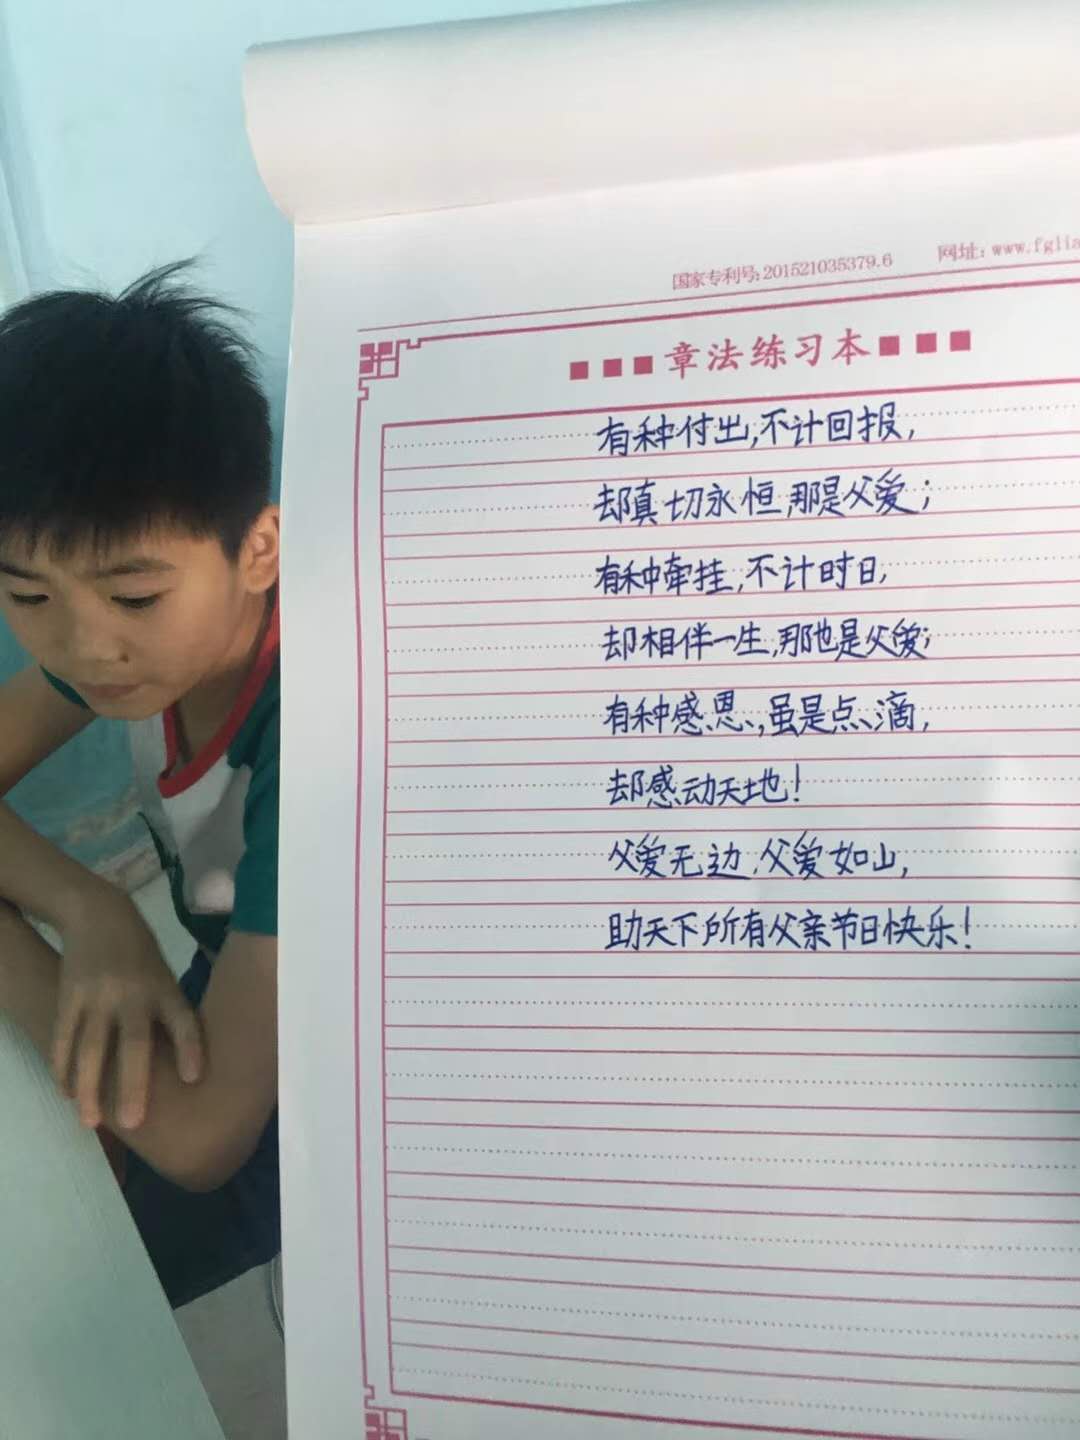 国家专利号:201521035379.6 网址:www.fglia
章法练习本
有种付出,不计回报,
却真切永恒,那是父爱;
有种牵挂,不计时日,
却相伴一生,那也是父爱;
有种感恩,虽是点滴,
却感动天地!
父爱无边,父爱如山,
助天下所有父亲节日快乐!